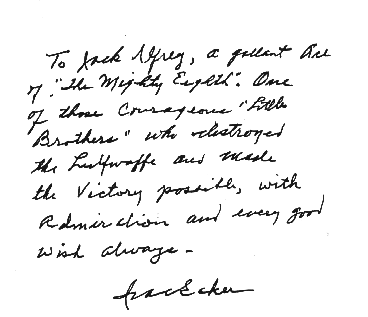 To Jack Ilfrey, a gallant Ace
of "The Mighty Eighth". One
of those Courageous "Little
Brothers" who destroyed
the Luftwaffe and made
the Victory possible, with
Admiration and every good
wish always -
Ira C Eaker